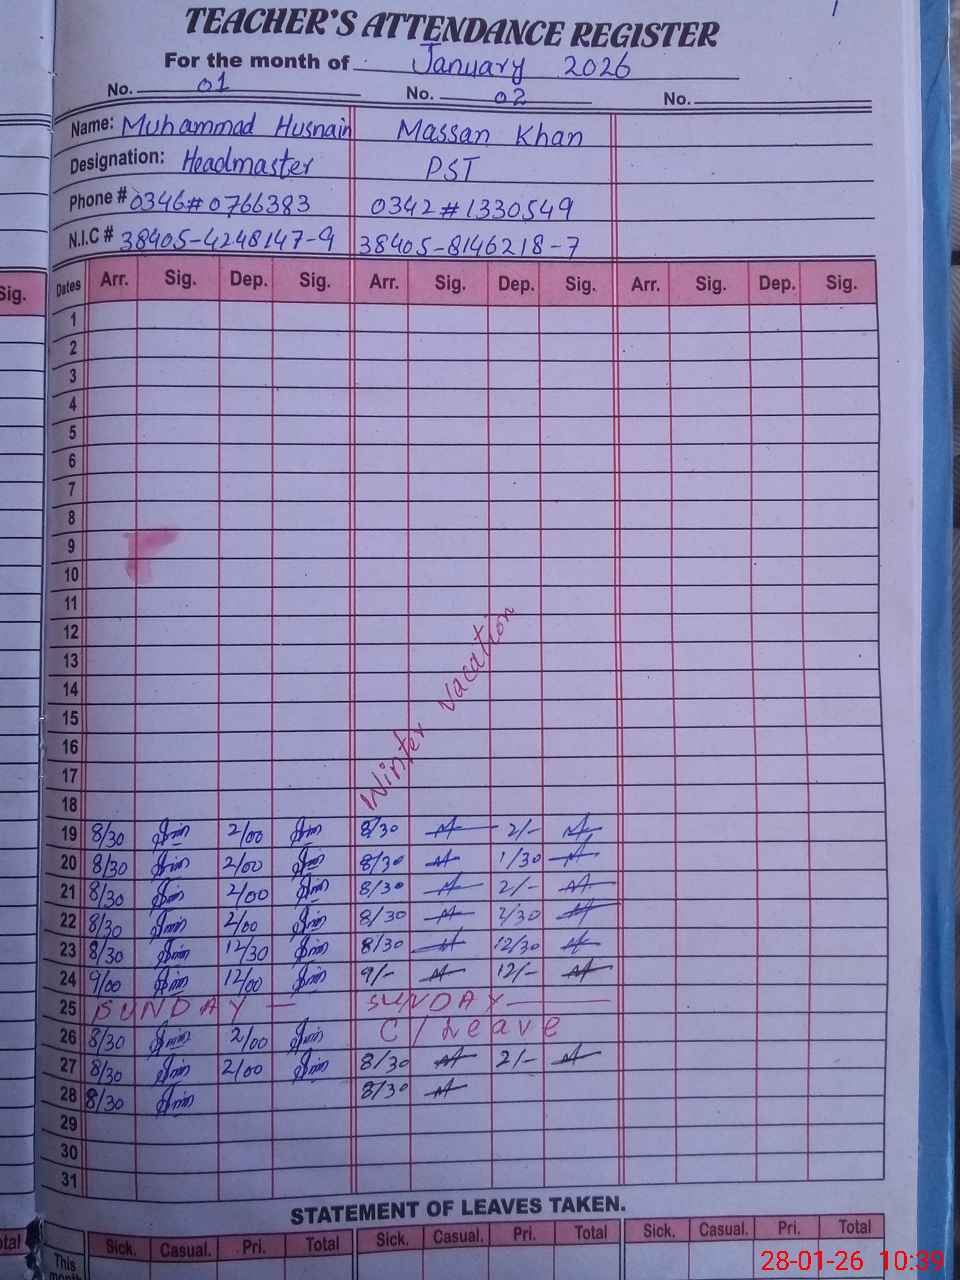 1
TEACHER'S ATTENDANCE REGISTER
For the month of January 2026
No. 01 No. 02 No.
Name: Muhammad Husnain Massan Khan
Designation: Headmaster PST
Phone # 0346#0766383 0342#1330549
N.I.C # 38405-4248147-9 38405-8146218-7
Sig. Dates Arr. Sig. Dep. Sig. Arr. Sig. Dep. Sig. Arr. Sig. Dep. Sig.
1
2
3
4
5
6
7
8
9
10
11
12
13
14
15
16
17
18
Winter Vacation
19 8/30 2/00 8/30 2/-
20 8/30 2/00 8/30 1/30
21 8/30 2/00 8/30 2/-
22 8/30 2/00 8/30
23 8/30 12/30 8/30 12/30
24 9/00 12/00 9/- 12/-
25 SUNDAY — SUNDAY —
26 8/30 2/00 C/Leave
27 8/30 2/00 8/30 2/-
28 8/30 8/30
29
30
31
STATEMENT OF LEAVES TAKEN.
Sick. Casual. Pri. Total Sick. Casual. Pri. Total Sick. Casual. Pri. Total
This
28-01-26 10:39